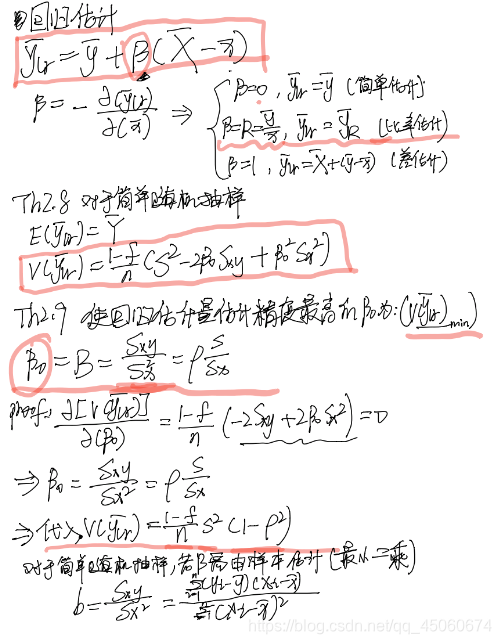 回归估计
ȳlr = ȳ + β(X̄ - x̄)
β = - ∂(ȳlr)/∂(x̄) ⇒ { β=0, ȳlr=ȳ (简单估计)
β=R=ȳ/x̄, ȳlr=ȳR (比率估计)
β=1, ȳlr=X̄+(ȳ-x̄) (差估计)
Th2.8 对于简单随机抽样
E(ȳlr)=Ȳ
V(ȳlr)=1-f/n (S²-2β₀Sxy+β₀²Sx²)
Th2.9 使回归估计量估计精度最高的β₀为: (V(ȳlr)min)
β₀ = B = Sxy/Sx² = ρ S/Sx
proof: ∂[V(ȳlr)]/∂(β₀) = 1-f/n (-2Sxy+2β₀Sx²)=0
⇒ β₀ = Sxy/Sx² = ρ S/Sx
⇒ 代入 V(ȳlr)=1-f/n S²(1-ρ²)
对于简单随机抽样,若β需由样本估计(最小二乘)
b = Sxy/Sx² = Σ(yi-ȳ)(xi-x̄)/Σ(xi-x̄)²
https://blog.csdn.net/qq_45060674